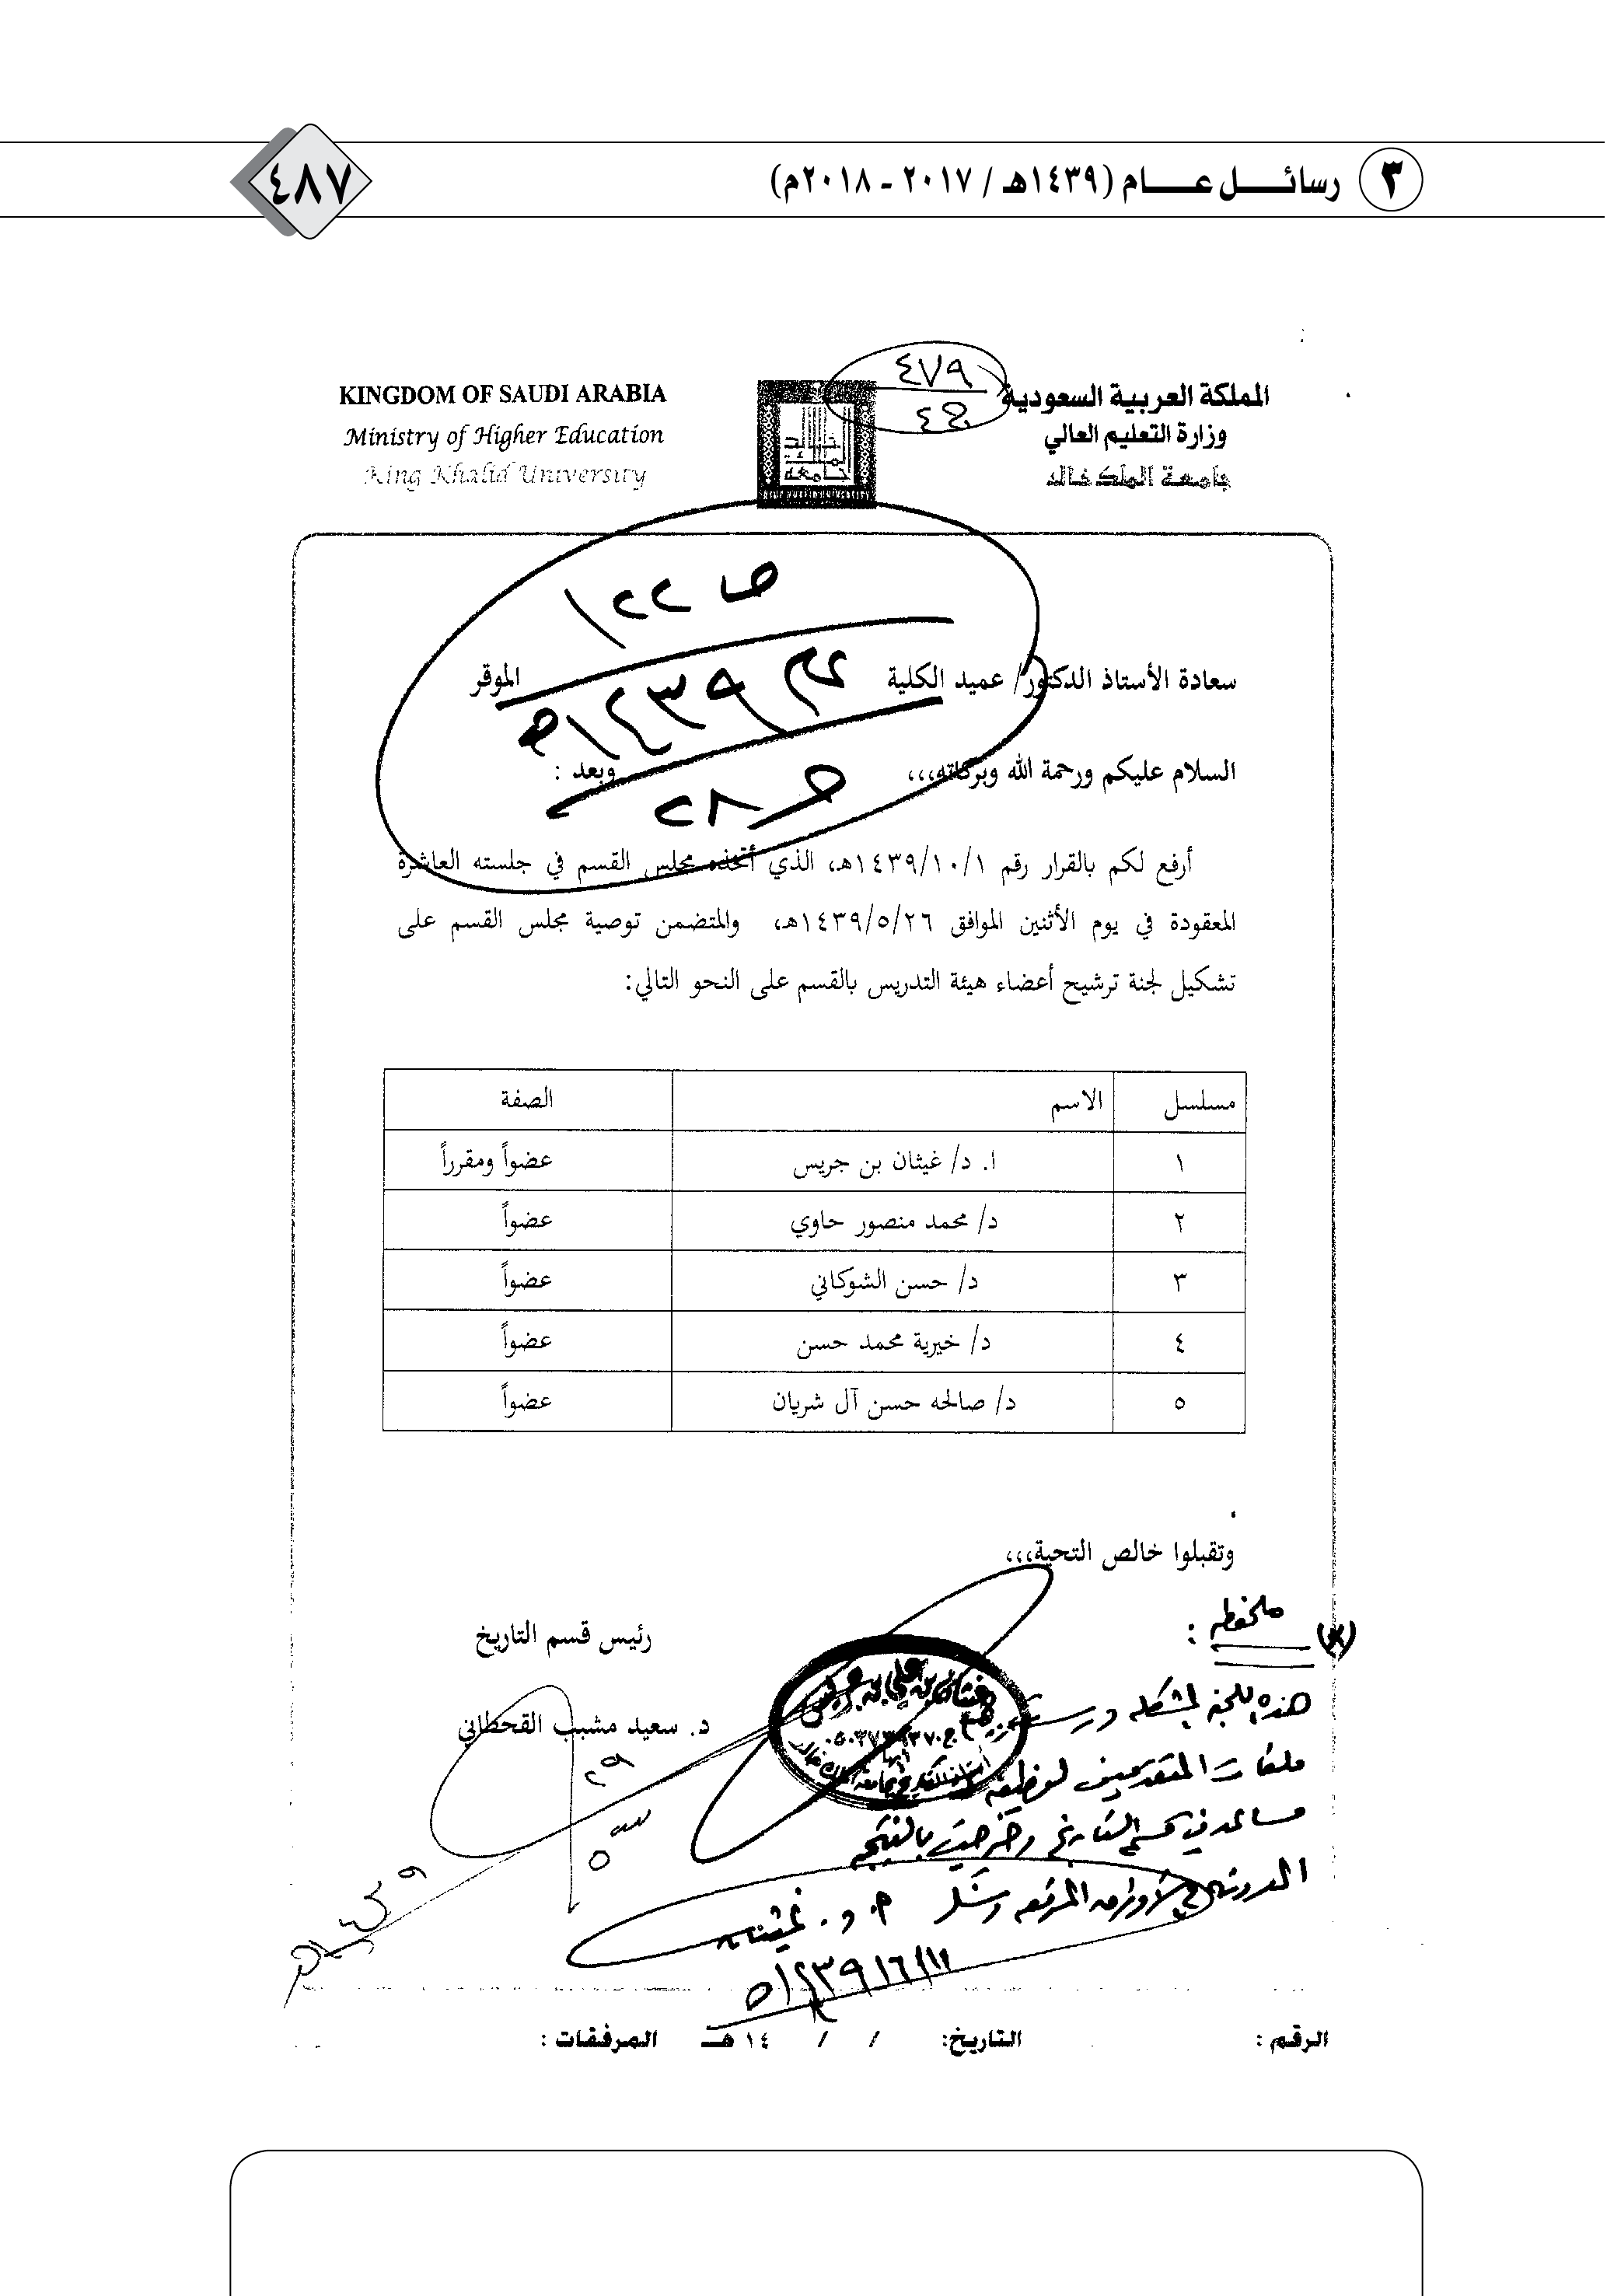 ٣ رسائل عام (١٤٣٩هـ / ٢٠١٧ - ٢٠١٨م)
٤٨٧
المملكة العربية السعودية
وزارة التعليم العالي
جامعة الملك خالد
٤٧٩
KINGDOM OF SAUDI ARABIA
Ministry of Higher Education
King Khalid University
عام ١٤٣٩هـ
سعادة الأستاذ الدكتور/ عميد الكلية الموقر
السلام عليكم ورحمة الله وبركاته،،، وبعد :
أرفع لكم بالقرار رقم ١٤٣٩/١٠/١هـ، الذي أتخذه مجلس القسم في جلسته العاشرة
المعقودة في يوم الأثنين الموافق ١٤٣٩/٥/٢٦هـ، والمتضمن توصية مجلس القسم على
تشكيل لجنة ترشيح أعضاء هيئة التدريس بالقسم على النحو التالي:
مسلسل الاسم الصفة
١ ا. د/ غيثان بن جريس عضواً ومقرراً
٢ د/ محمد منصور حاوي عضواً
٣ د/ حسن الشوكاني عضواً
٤ د/ خيرية محمد حسن عضواً
٥ د/ صالحه حسن آل شريان عضواً
وتقبلوا خالص التحية،،،
رئيس قسم التاريخ
د. سعيد مشبب القحطاني
ملحظه :
هذه اللجنة المشكله
ملفات المتقدمين لوظيفة
التاريخ وخرجت بالنتيجه
المدونة المرفقه
الرقم : التاريخ: / / ١٤ هـ المرفقات :